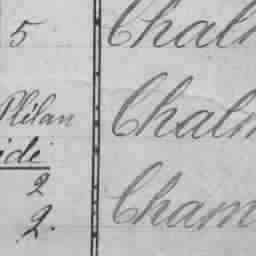 5 Chalm
Plélan Chalm
idi
2 Cham
2.